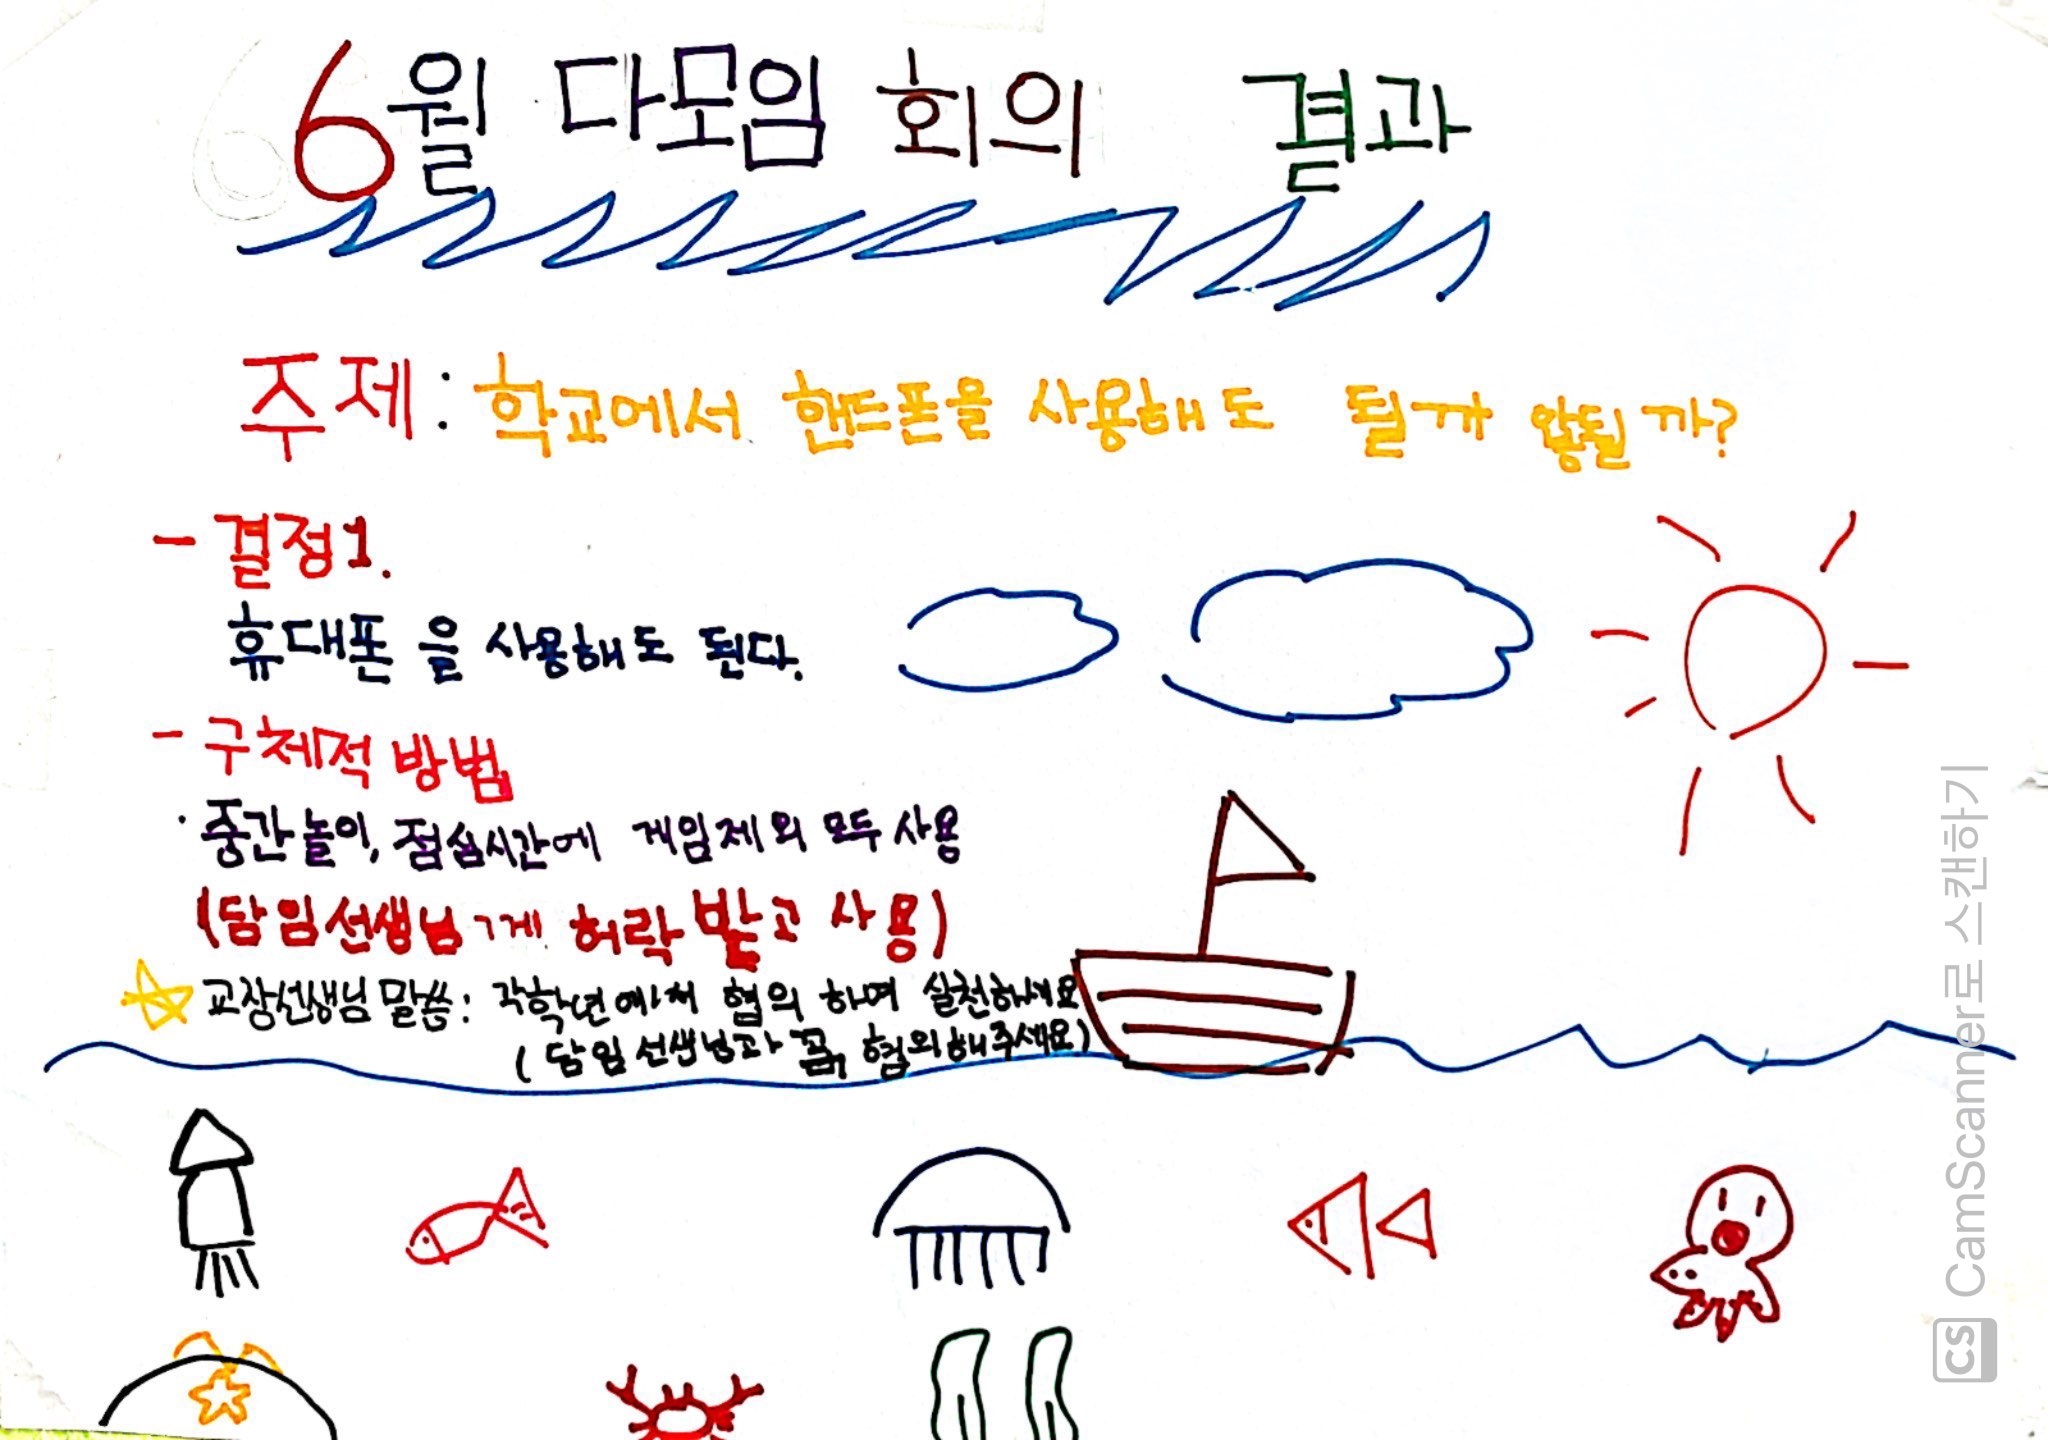 6월 다모임 회의 결과
주제: 학교에서 핸드폰을 사용해도 될까 않될까?
- 결정1.
휴대폰을 사용해도 된다.
- 구체적 방법
· 중간놀이, 점심시간에 게임제외 모두 사용
(담임선생님께 허락 받고 사용)
☆ 교장선생님 말씀: 각학년에서 협의 하여 실천하세요
(담임선생님과 꼭, 협의해주세요)
CS CamScanner로 스캔하기